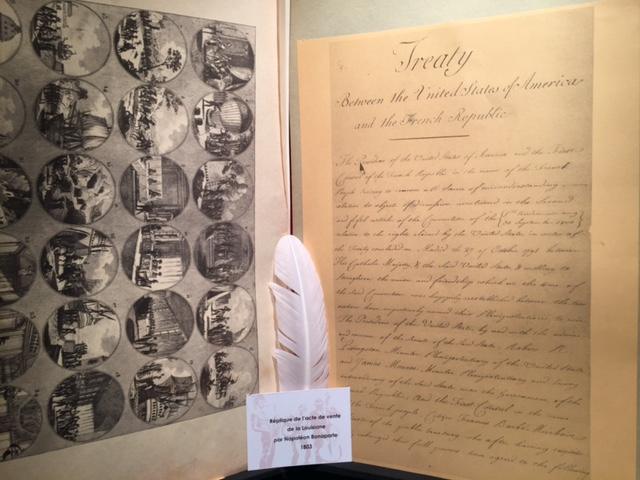 Treaty
Between the United States of America
and the French Republic
The President of the United States of America and the First
Consul of the French Republic in the name of the French
People desiring to remove all Source of misunderstanding
relative to objects of discussion mentioned in the Second
and fifth articles of the Convention of the
relative to the rights claimed by the United States in virtue of
the Treaty concluded at Madrid the 27 of October 1795 between
His Catholic Majesty, & the Said United States, & willing to
Strengthen the union and friendship which at the time of
the Said Convention was happily reestablished between the two
nations have respectively named their Plenipotentiaries, to wit
The President of the United States, by and with the advice
and consent of the Senate of the Said States, Robert R.
Livingston Minister Plenipotentiary of the United States
and James Monroe Minister Plenipotentiary and Envoy
extraordinary of the Said States near the Government of the
French Republic; And the First Consul in the name
of the French people, Citizen Francis Barbé Marbois
Minister of the public treasury who after having respectively
exchanged their full powers have agreed to the following
Réplique de l'acte de vente
de la Louisiane
par Napoléon Bonaparte
1803